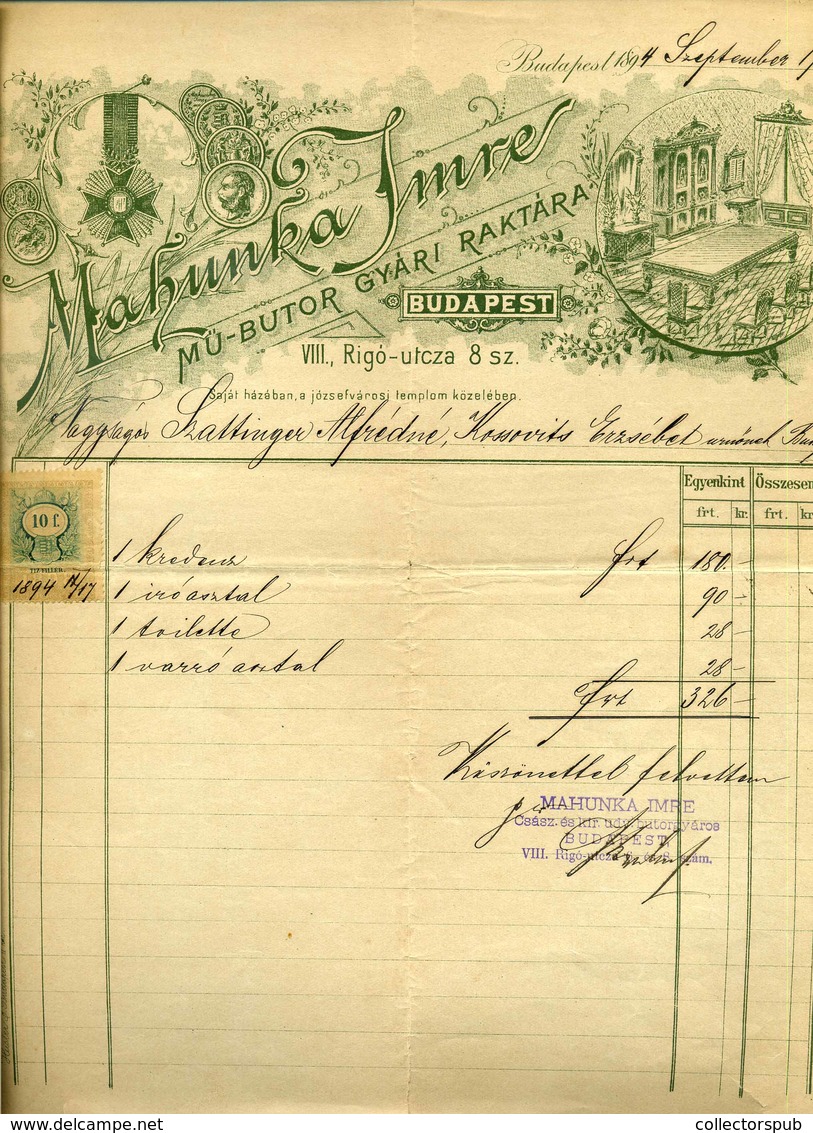 Budapest 1894 Szeptember 17
Mahunka Imre
MŰ-BUTOR GYÁRI RAKTÁRA
BUDAPEST
VIII., Rigó-utcza 8 sz.
Saját házában, a józsefvárosi templom közelében.
Nagyságos Szattinger Alfrédné, Kossovits Erzsébet urnőnek
Egyenkint Összesen
frt. kr. frt. kr
10 f.
TIZ FILLÉR.
1894 IX/17
1 kredenz frt 180.
1 iróasztal 90 –
1 toilette 28 –
1 varró asztal 28 –
frt 326 –
Köszönettel felvettem
per
MAHUNKA IMRE
Csász. és kir. udv. butorgyáros
BUDAPEST
VIII. Rigó-utcza 6. és 8. szám.
www.delcampe.net
collectorspub